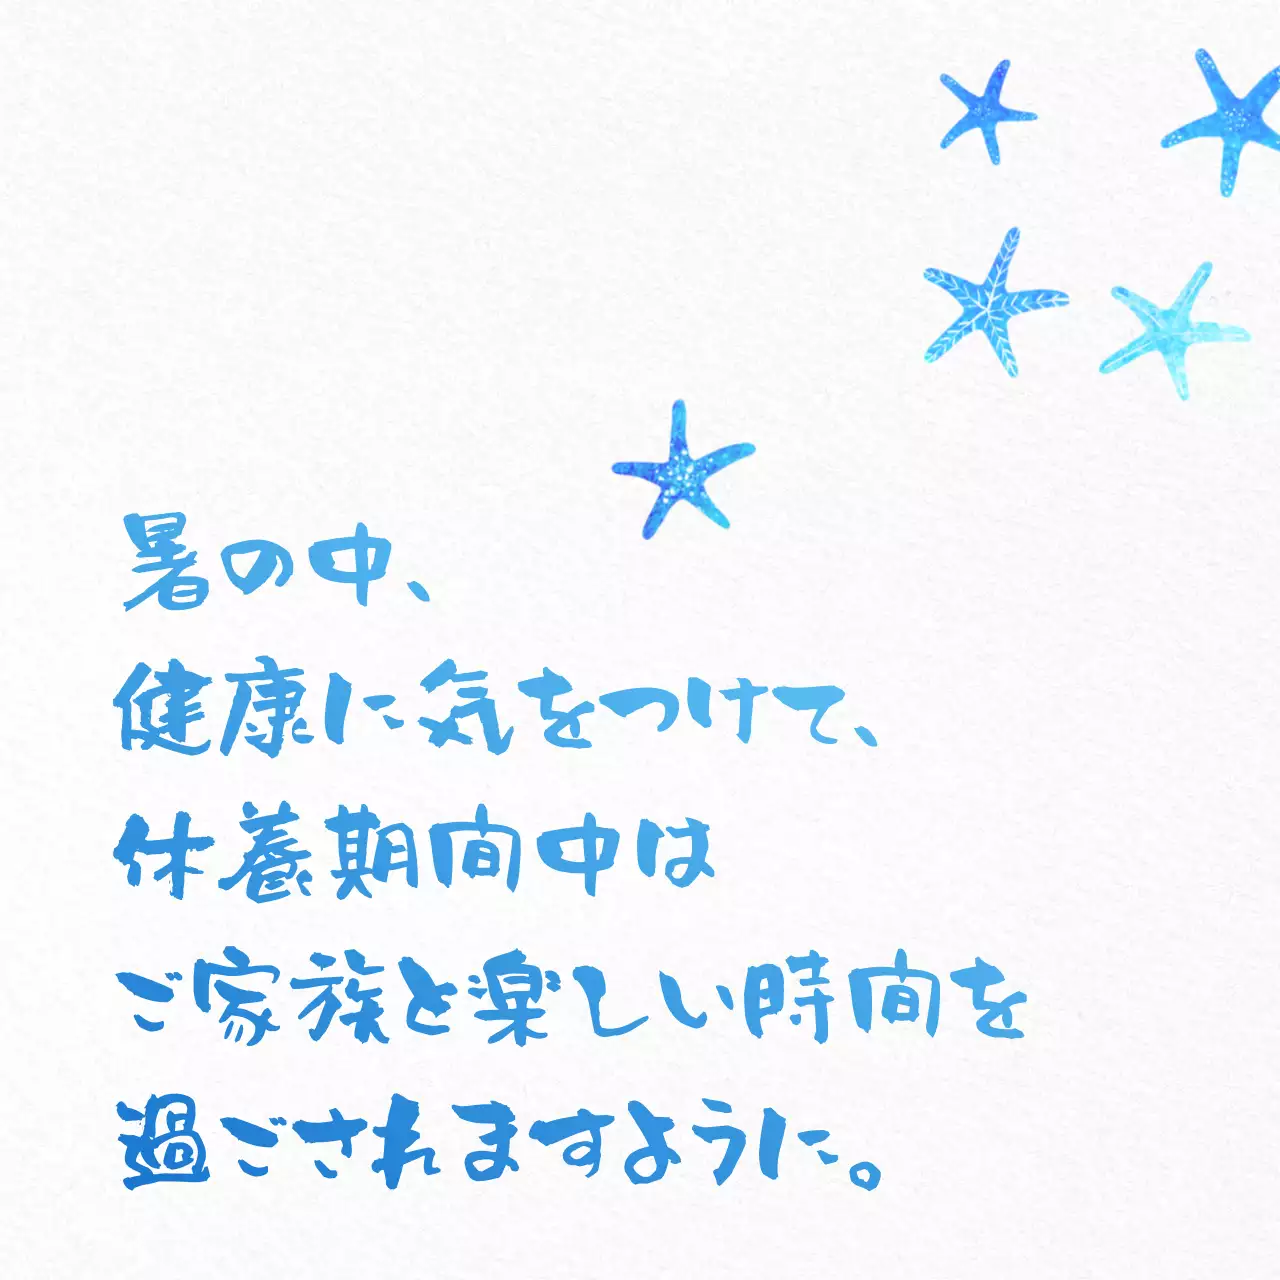 暑の中、
健康に気をつけて、
休養期間中は
ご家族と楽しい時間を
過ごされますように。